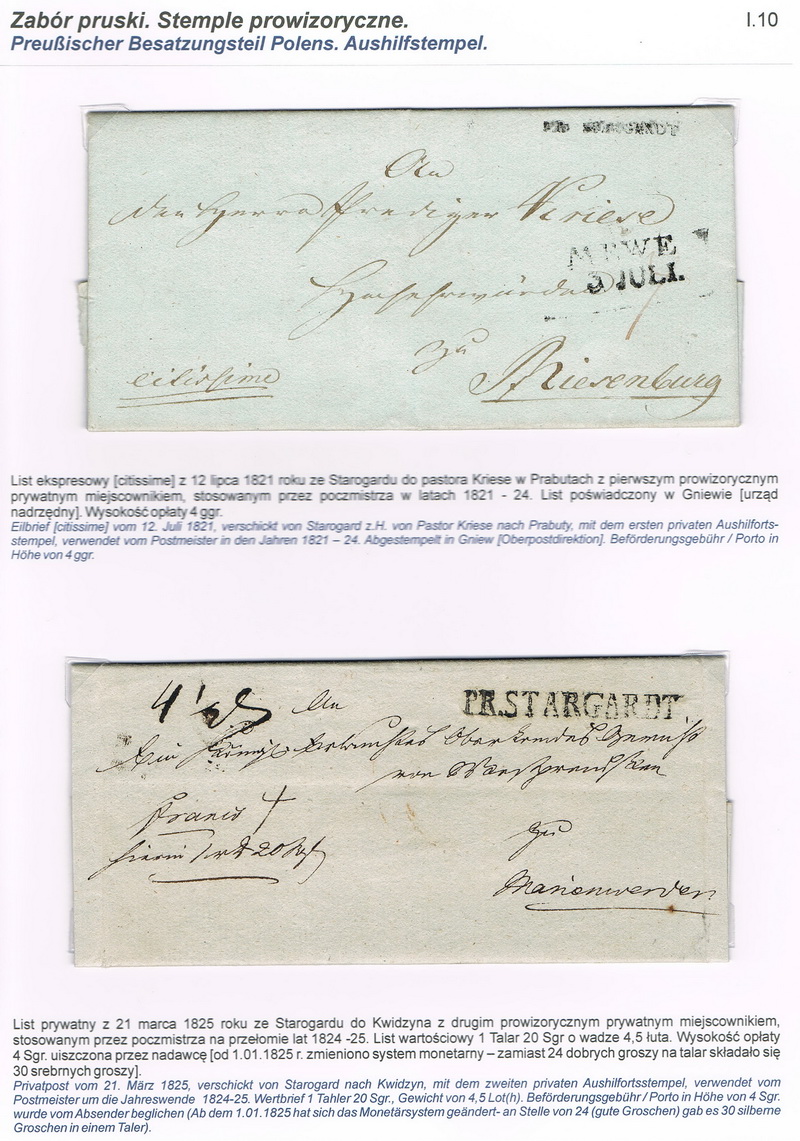 Zabór pruski. Stemple prowizoryczne.
I.10
Preußischer Besatzungsteil Polens. Aushilfstempel.
PR. STARGARDT
An
den Herrn Prediger Kriese
MEWE
3 JULI.
Hochehrwürden
zu
citissime
Riesenburg
List ekspresowy [citissime] z 12 lipca 1821 roku ze Starogardu do pastora Kriese w Prabutach z pierwszym prowizorycznym
prywatnym miejscownikiem, stosowanym przez poczmistrza w latach 1821 - 24. List poświadczony w Gniewie [urząd
nadrzędny]. Wysokość opłaty 4 ggr.
Eilbrief [citissime] vom 12. Juli 1821, verschickt von Starogard z.H. von Pastor Kriese nach Prabuty, mit dem ersten privaten Aushilforts-
stempel, verwendet vom Postmeister in den Jahren 1821 – 24. Abgestempelt in Gniew [Oberpostdirektion]. Beförderungsgebühr / Porto in
Höhe von 4 ggr.
4 1/2
An
PR.STARGARDT
Ein Königl. Oberlandes Gericht
von Westpreußen
Franco
zu
hierin 1 rt 20 Sgr
Marienwerder
List prywatny z 21 marca 1825 roku ze Starogardu do Kwidzyna z drugim prowizorycznym prywatnym miejscownikiem,
stosowanym przez poczmistrza na przełomie lat 1824 -25. List wartościowy 1 Talar 20 Sgr o wadze 4,5 łuta. Wysokość opłaty
4 Sgr. uiszczona przez nadawcę [od 1.01.1825 r. zmieniono system monetarny – zamiast 24 dobrych groszy na talar składało się
30 srebrnych groszy].
Privatpost vom 21. März 1825, verschickt von Starogard nach Kwidzyn, mit dem zweiten privaten Aushilfortsstempel, verwendet vom
Postmeister um die Jahreswende 1824-25. Wertbrief 1 Tahler 20 Sgr., Gewicht von 4,5 Lot(h). Beförderungsgebühr / Porto in Höhe von 4 Sgr.
wurde vom Absender beglichen (Ab dem 1.01.1825 hat sich das Monetärsystem geändert- an Stelle von 24 (gute Groschen) gab es 30 silberne
Groschen in einem Taler).